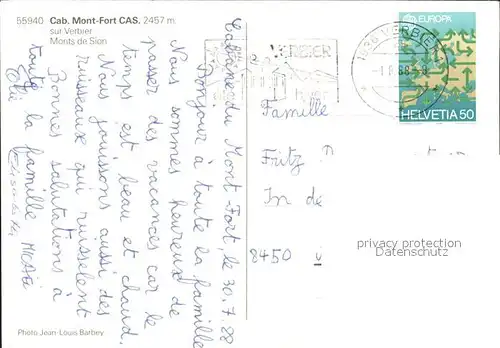 55940 Cab. Mont-Fort CAS. 2457 m.
sur Verbier
Monts de Sion
Cabane du Mont-Fort, le 30.7.88
Bonjour à toute la famille
Nous sommes heureux de
passer des vacances car le
temps est beau et chaud.
Nous jouissons aussi des
ruisseaux qui ruissellent
Bonnes salutations à
toute la famille
Photo Jean-Louis Barbey
VERBIER
1936 VERBIER
EUROPA
HELVETIA 50
Famille
Fritz
In de
8450
privacy protection
Datenschutz